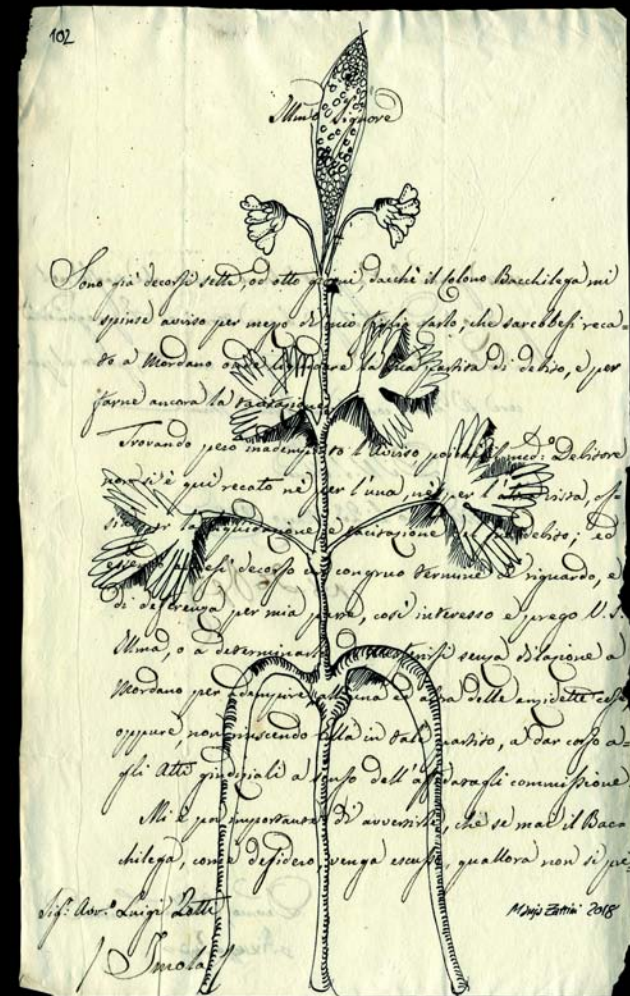 102
Illmo Signore
Sono già decorsi sette, od otto giorni, dacchè il Colono Bacchilega mi
spinse avviso per mezo di mio figlio Carlo, che sarebbesi reca=
to a Mordano onde liquidare la sua partita di debito, e per
farne ancora la tacitazione
Trovando però inadempito l'avviso poichè il med.º Debitore
non si è quì recato nè per l'una, nè per l'altra
per la liquidazione e tacitazione debito; ed
decorso un congruo termine di riguardo, e
di deferenza per mia parte, così interesso e prego V. S.
Illma, o a determinarlo senza dilazione a
Mordano per adempire all'una ed altra delle anzidette cose
oppure, non riuscendo Ella in tale partito, a dar corso a=
gli Atti giudiziali a senso dell'a datagli commissione
Mi è poi importante di avvertirla, che se mai il Baca
chilega, come desidero, venga escusso, quallora non si pre=
Sig. Avv.º Luigi Zotti
Imola
2018